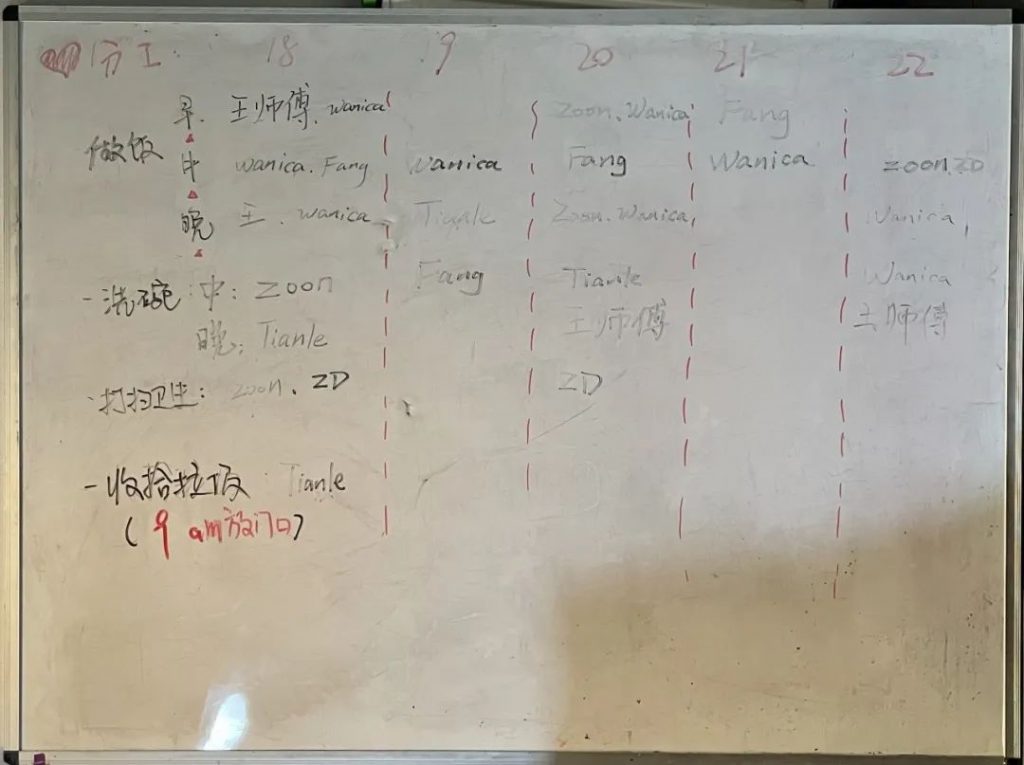 分工: 18 19 20 21 22
早. 王师傅. wanica zoon. Wanica Fang
做饭 中 wanica. Fang Wanica Fang Wanica zoon. ZD
晚 王. wanica Tianle Zoon. Wanica Wanica
- 洗碗 中: zoon Fang Tianle Wanica
晚: Tianle 王师傅 王师傅
·打扫卫生: zoon. ZD ZD
- 收拾垃圾: Tianle
(9 am放门口)